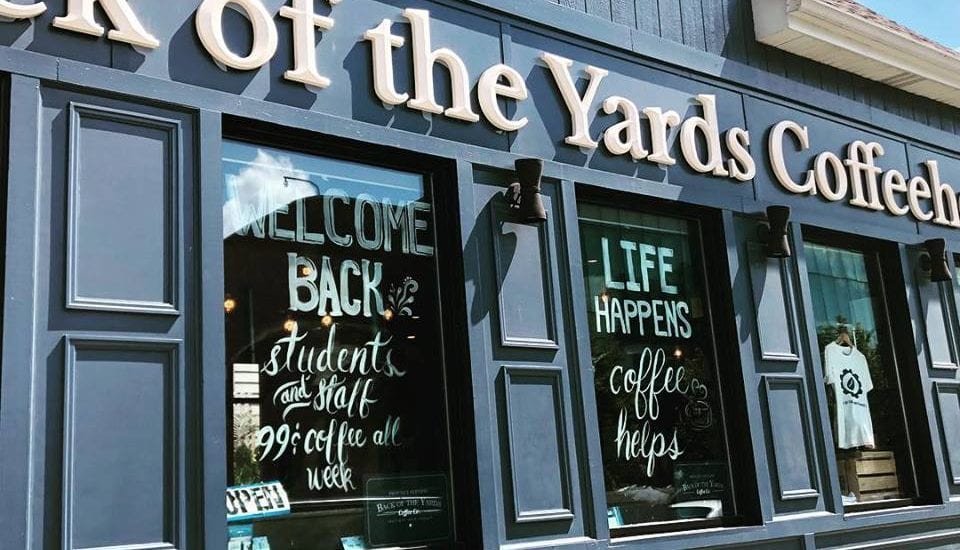 k of the Yards Coffeeh
WELCOME
BACK
students
and staff
99¢ coffee all
week
OPEN
BACK OF THE YARDS
Coffee Co.
LIFE
HAPPENS
coffee
helps
BACK OF THE YARDS
Coffee Co.